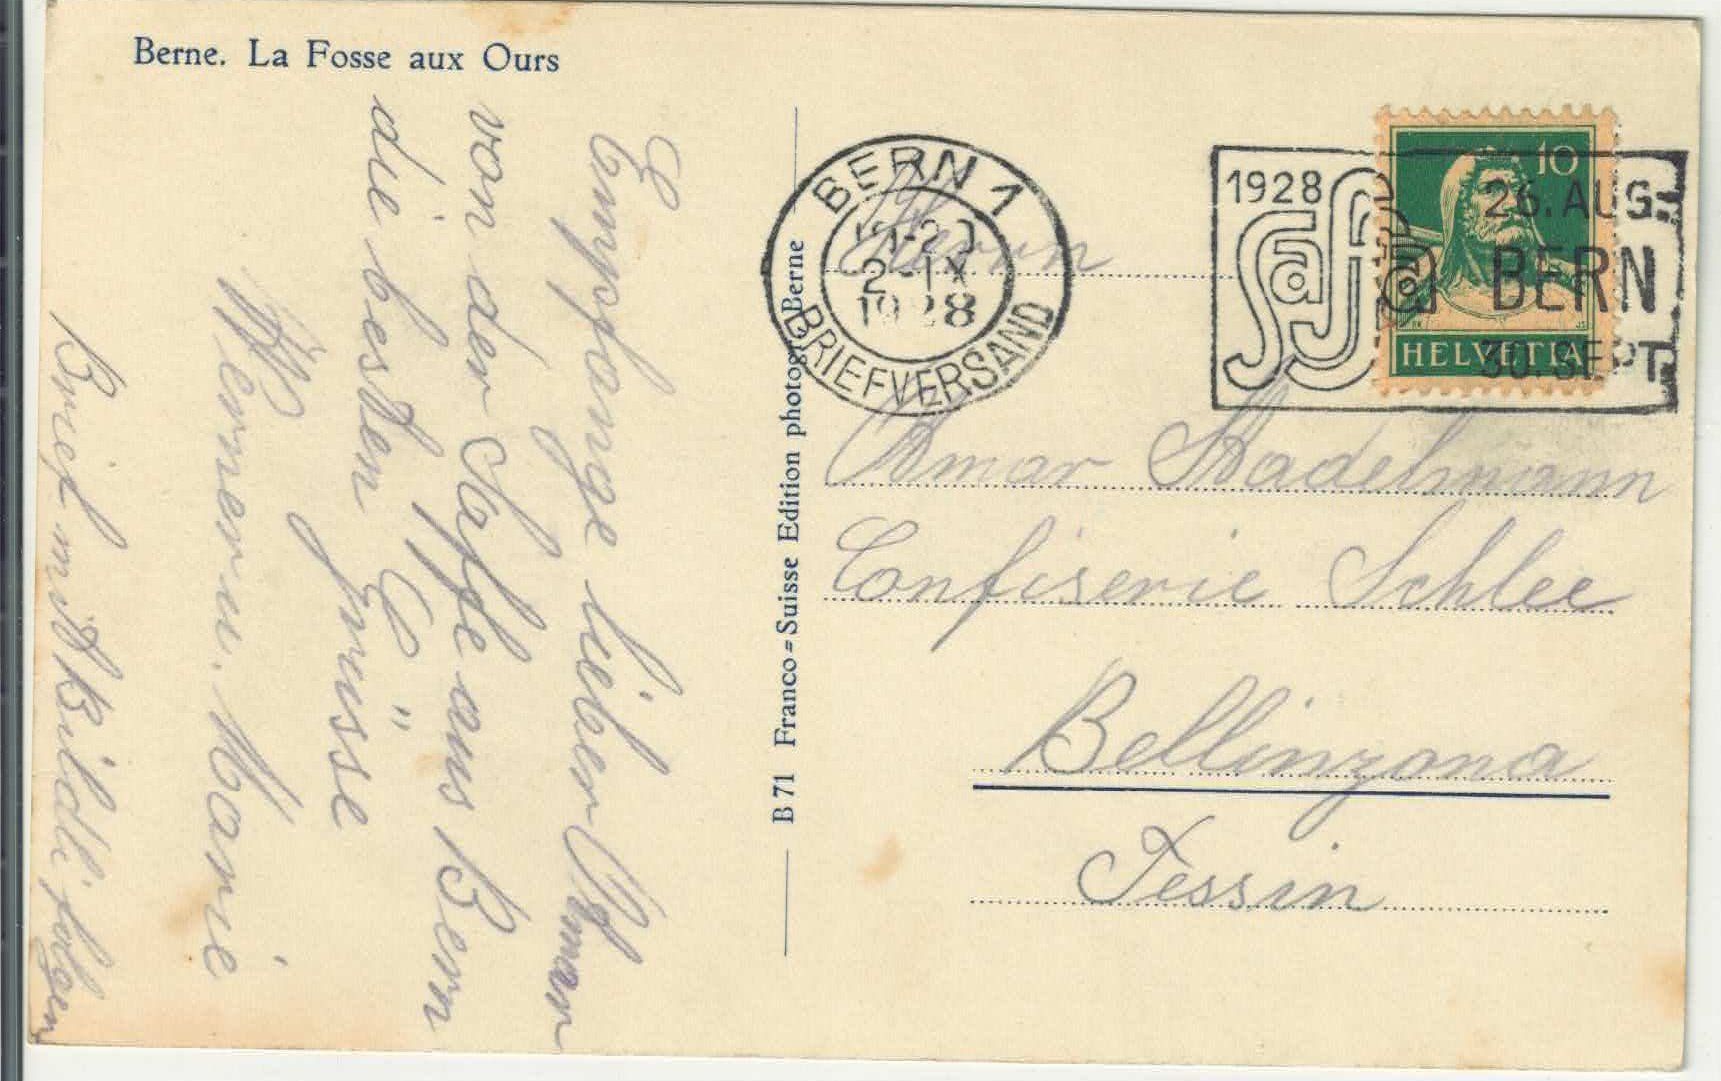 Berne. La Fosse aux Ours
Empfange lieber Omar
von der Saffa aus Bern
die besten
Grüsse
Werner u. Marie
Brief mit Bildli folgen
B 71 Franco=Suisse Edition photogr. Berne
BERN 1
2-IX
1928
BRIEFVERSAND
1928
Saffa
26. AUG.
BERN
30. SEPT.
10
HELVETIA
Herrn
Omar Stadelmann
Confiserie Schlee
Bellinzona
Tessin